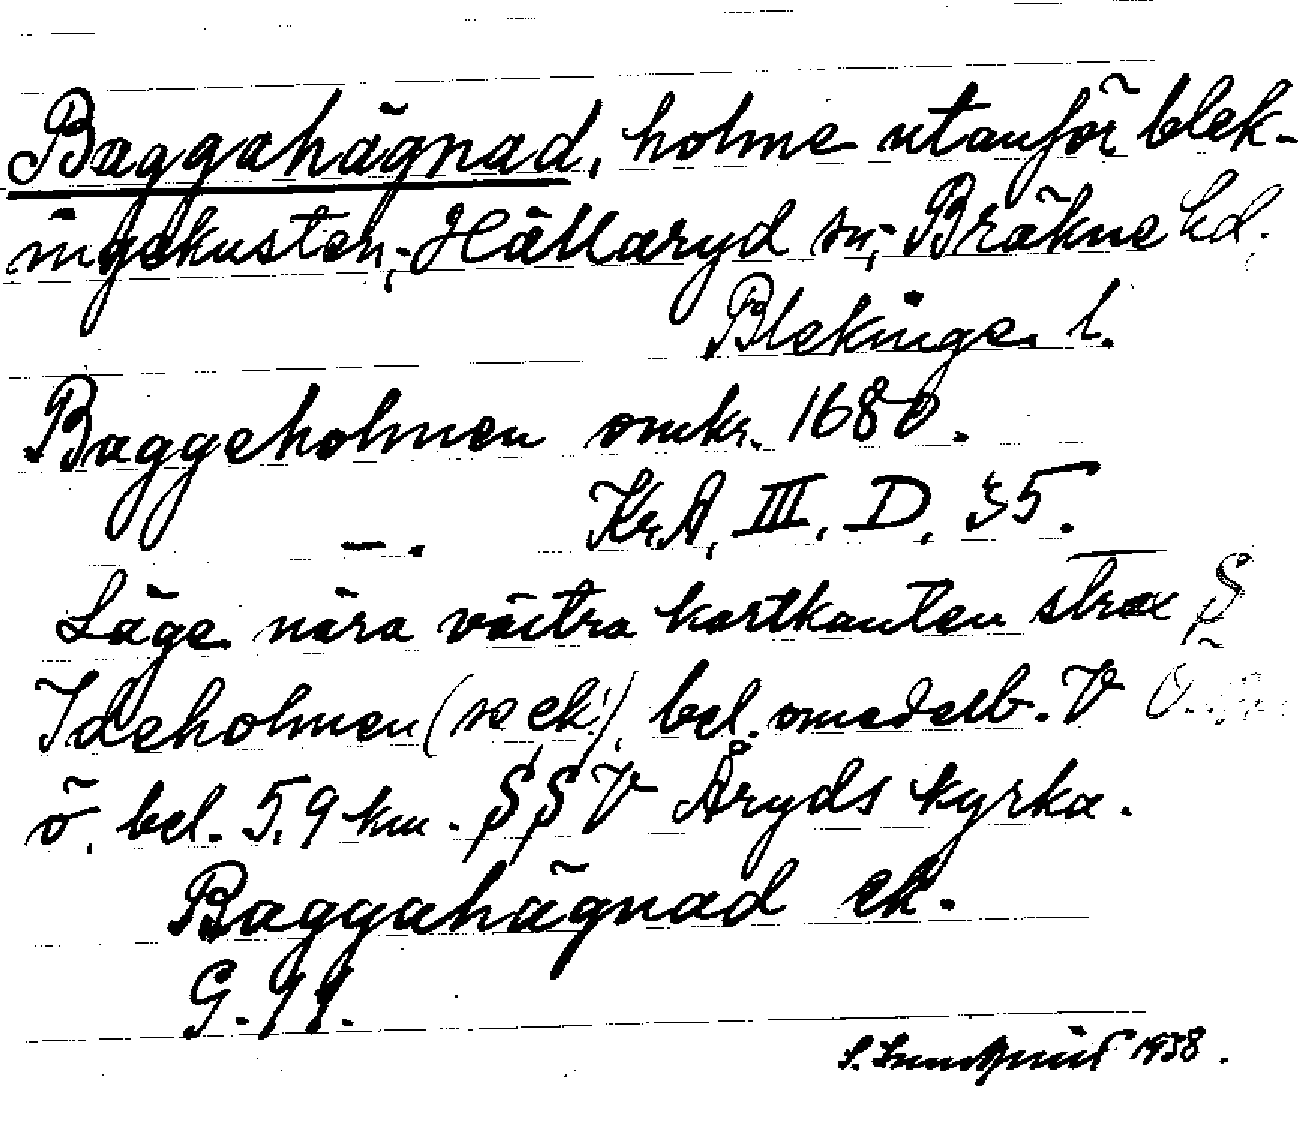 Baggahägnad, holme utanför blek-
ingekusten, Hällaryd sn, Bräkne hd.
Blekinge l.
Baggeholmen omkr. 1680.
Kr.A. III. D. 35.
Läge nära västra kartkanten strax S
Ideholmen (se ek!), bel. omedelb. V
ö, bel. 5,9 km. SSV Åryds kyrka.
Baggahägnad ek.
G. 99.
S. 1938.